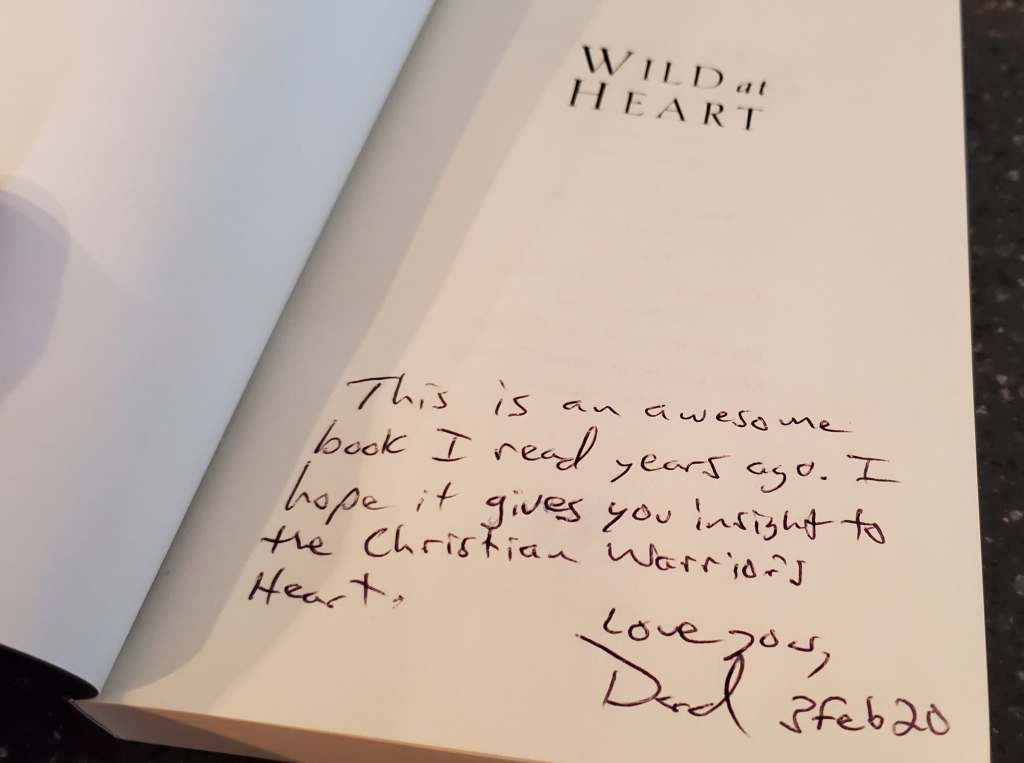 WILD at
HEART
This is an awesome
book I read years ago. I
hope it gives you insight to
the Christian Warrior's
Heart.
Love you,
Dad 3Feb20